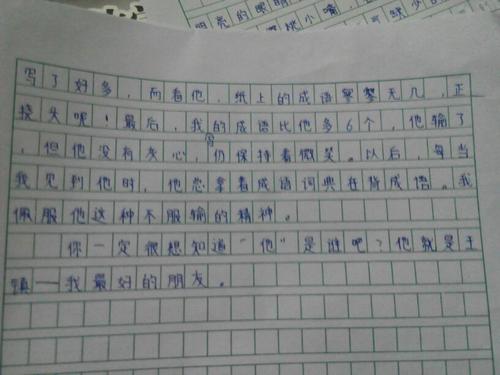 明亮的眼睛
写了好多，而看他，纸上的成语寥寥无几，正
挠头呢！最后，我的成语比他多6个，他输了
，但他没有灰心，仍保持着微笑。以后，每当
我见到他时，他总拿着成语词典在背成语。我
佩服他这种不服输的精神。
你一定很想知道“他”是谁吧？他就是王
镇——我最好的朋友。